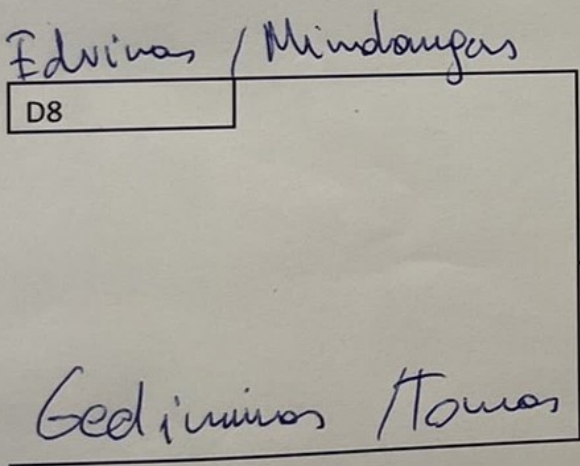 Edvinas / Mindaugas
D8
Gediminas / Tomas